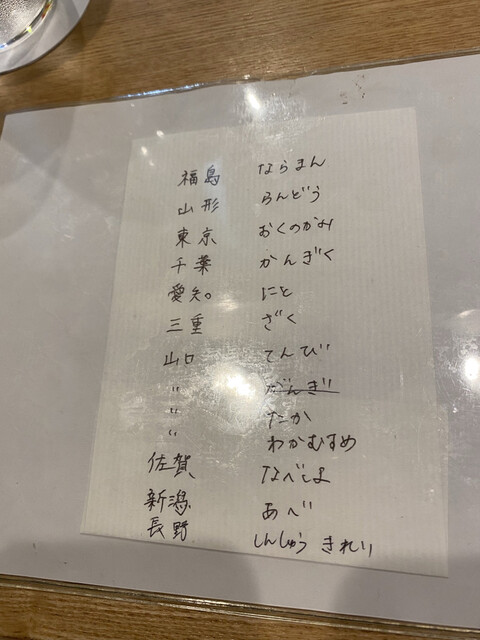 福島 ならまん
山形 らんどう
東京 おくのかみ
千葉 かんぎく
愛知。 にと
三重 ざく
山口 てんび
〃 がんぎ
〃 たか
〃 わかむすめ
佐賀 なべしま
新潟 あべ
長野 しんしゅう きれい